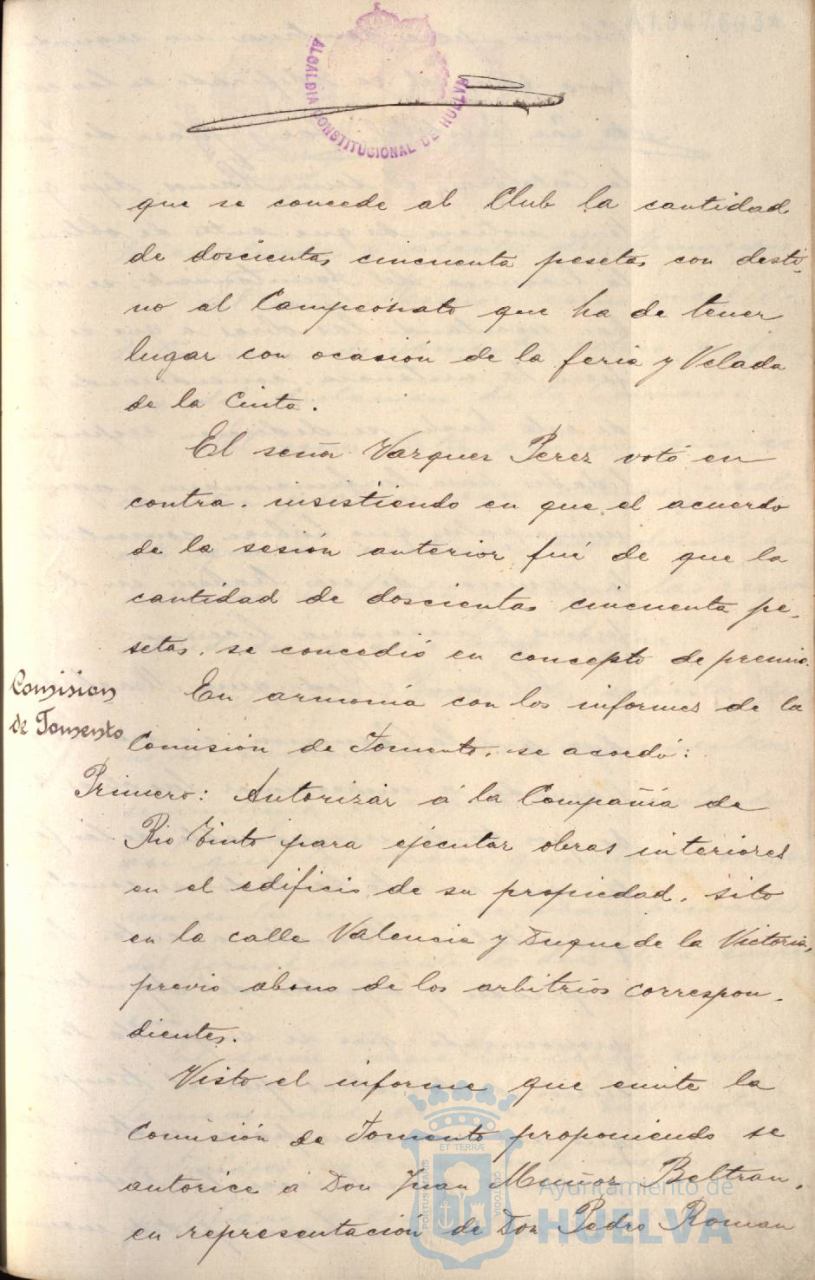 ALCALDIA CONSTITUCIONAL DE HUELVA
que se concede al Club la cantidad
de doscientas cincuenta pesetas con desti-
no al Campeonato que ha de tener
lugar con ocasión de la feria y Velada
de la Cinta.
El señor Vazquez Perez votó en
contra, insistiendo en que el acuerdo
de la sesión anterior fué de que la
cantidad de doscientas cincuenta pe-
setas, se concedió en concepto de premio.
Comision
de Fomento
En armonía con los informes de la
Comisión de Fomento, se acordó:
Primero: Autorizar á la Compañía de
Rio Tinto para ejecutar obras interiores
en el edificio de su propiedad, sito
en la calle Valencia y Duque de la Victoria,
previo abono de los arbitrios correspon-
dientes.
Visto el informe que emite la
Comisión de Fomento proponiendo se
autorice á Don Juan Muñoz Beltran,
en representación de Don Pedro Roman
ET TERRÆ
PORTUS MARIS
CUSTODIA
Ayuntamiento de
HUELVA